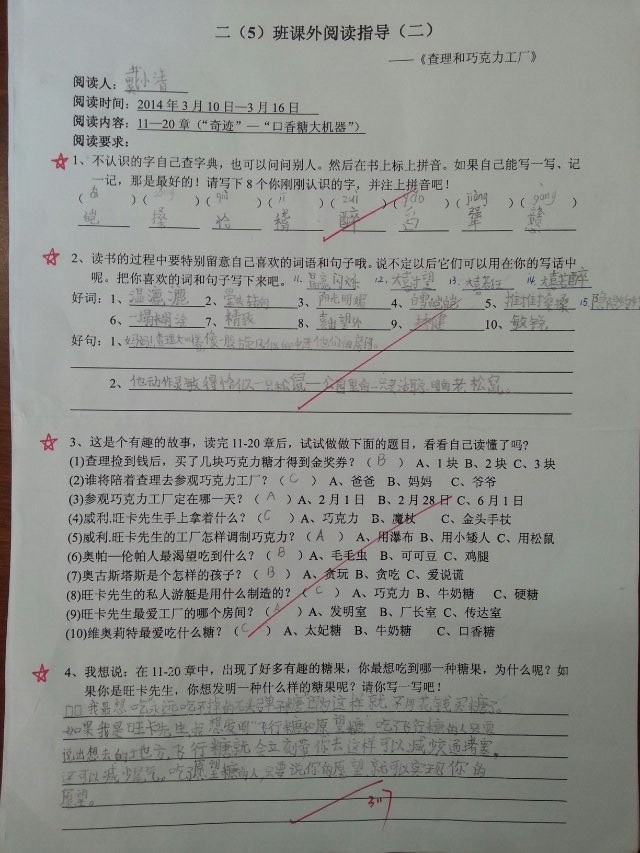 二（5）班课外阅读指导（二）
——《查理和巧克力工厂》
阅读人：
阅读时间：2014年3月10日—3月16日
阅读内容：11—20章（“奇迹”—“口香糖大机器”）
阅读要求：
1、不认识的字自己查字典，也可以问问别人。然后在书上标上拼音。如果自己能写一写、记
一记，那是最好的！请写下8个你刚刚认识的字，并注上拼音吧！
（ ）（ ）（ ）（ ）（ ）（ ）（jiǎng）（gàng）
恰 醉
2、读书的过程中要特别留意自己喜欢的词语和句子哦。说不定以后它们可以用在你的写话中
呢。把你喜欢的词和句子写下来吧。11. 晶晶闪烁 12. 大喜过望 13. 14.
好词：1、 2、 3、阳光明媚 4、 5、 15
6、一塌糊涂 7、精致 8、喜出望外 9、 10、敏锐
好句：1、
2、他动作灵敏得恰似一只松鼠—公园里 老松鼠。
3、这是个有趣的故事，读完11-20章后，试试做做下面的题目，看看自己读懂了吗？
(1)查理捡到钱后，买了几块巧克力糖才得到金奖券？（B）A、1块 B、2块 C、3块
(2)谁将陪着查理去参观巧克力工厂？（C）A、爸爸 B、妈妈 C、爷爷
(3)参观巧克力工厂定在哪一天？（A）A、2月1日 B、2月28日 C、6月1日
(4)威利.旺卡先生手上拿着什么？（C）A、巧克力 B、魔杖 C、金头手杖
(5)威利.旺卡的工厂怎样调制巧克力？（A）A、用瀑布 B、用小矮人 C、用松鼠
(6)奥帕—伦帕人最渴望吃到什么？（B）A、毛毛虫 B、可可豆 C、鸡腿
(7)奥古斯塔斯是个怎样的孩子？（B）A、贪玩 B、贪吃 C、爱说谎
(8)旺卡先生的私人游艇是用什么制造的？（C）A、巧克力 B、牛奶糖 C、硬糖
(9)旺卡先生最爱工厂的哪个房间？（A）A、发明室 B、厂长室 C、传达室
(10)维奥莉特最爱吃什么糖？（C）A、太妃糖 B、牛奶糖 C、口香糖
4、我想说：在11-20章中，出现了好多有趣的糖果，你最想吃到哪一种糖果，为什么呢？如
果你是旺卡先生，你想发明一种什么样的糖果呢？请你写一写吧！
我最想吃永远吃不掉的石头弹子糖因为这样就不用花钱买糖了。
如果我是旺卡先生 想发明“飞行糖和愿望糖”吃飞行糖的人只要
说出想去的地方，飞行糖就会立刻带你去这样可以减烦通堵塞。
还可以减少尾气。吃愿望糖的人，只要说你的愿望就可以实现你的
愿望。
3.17